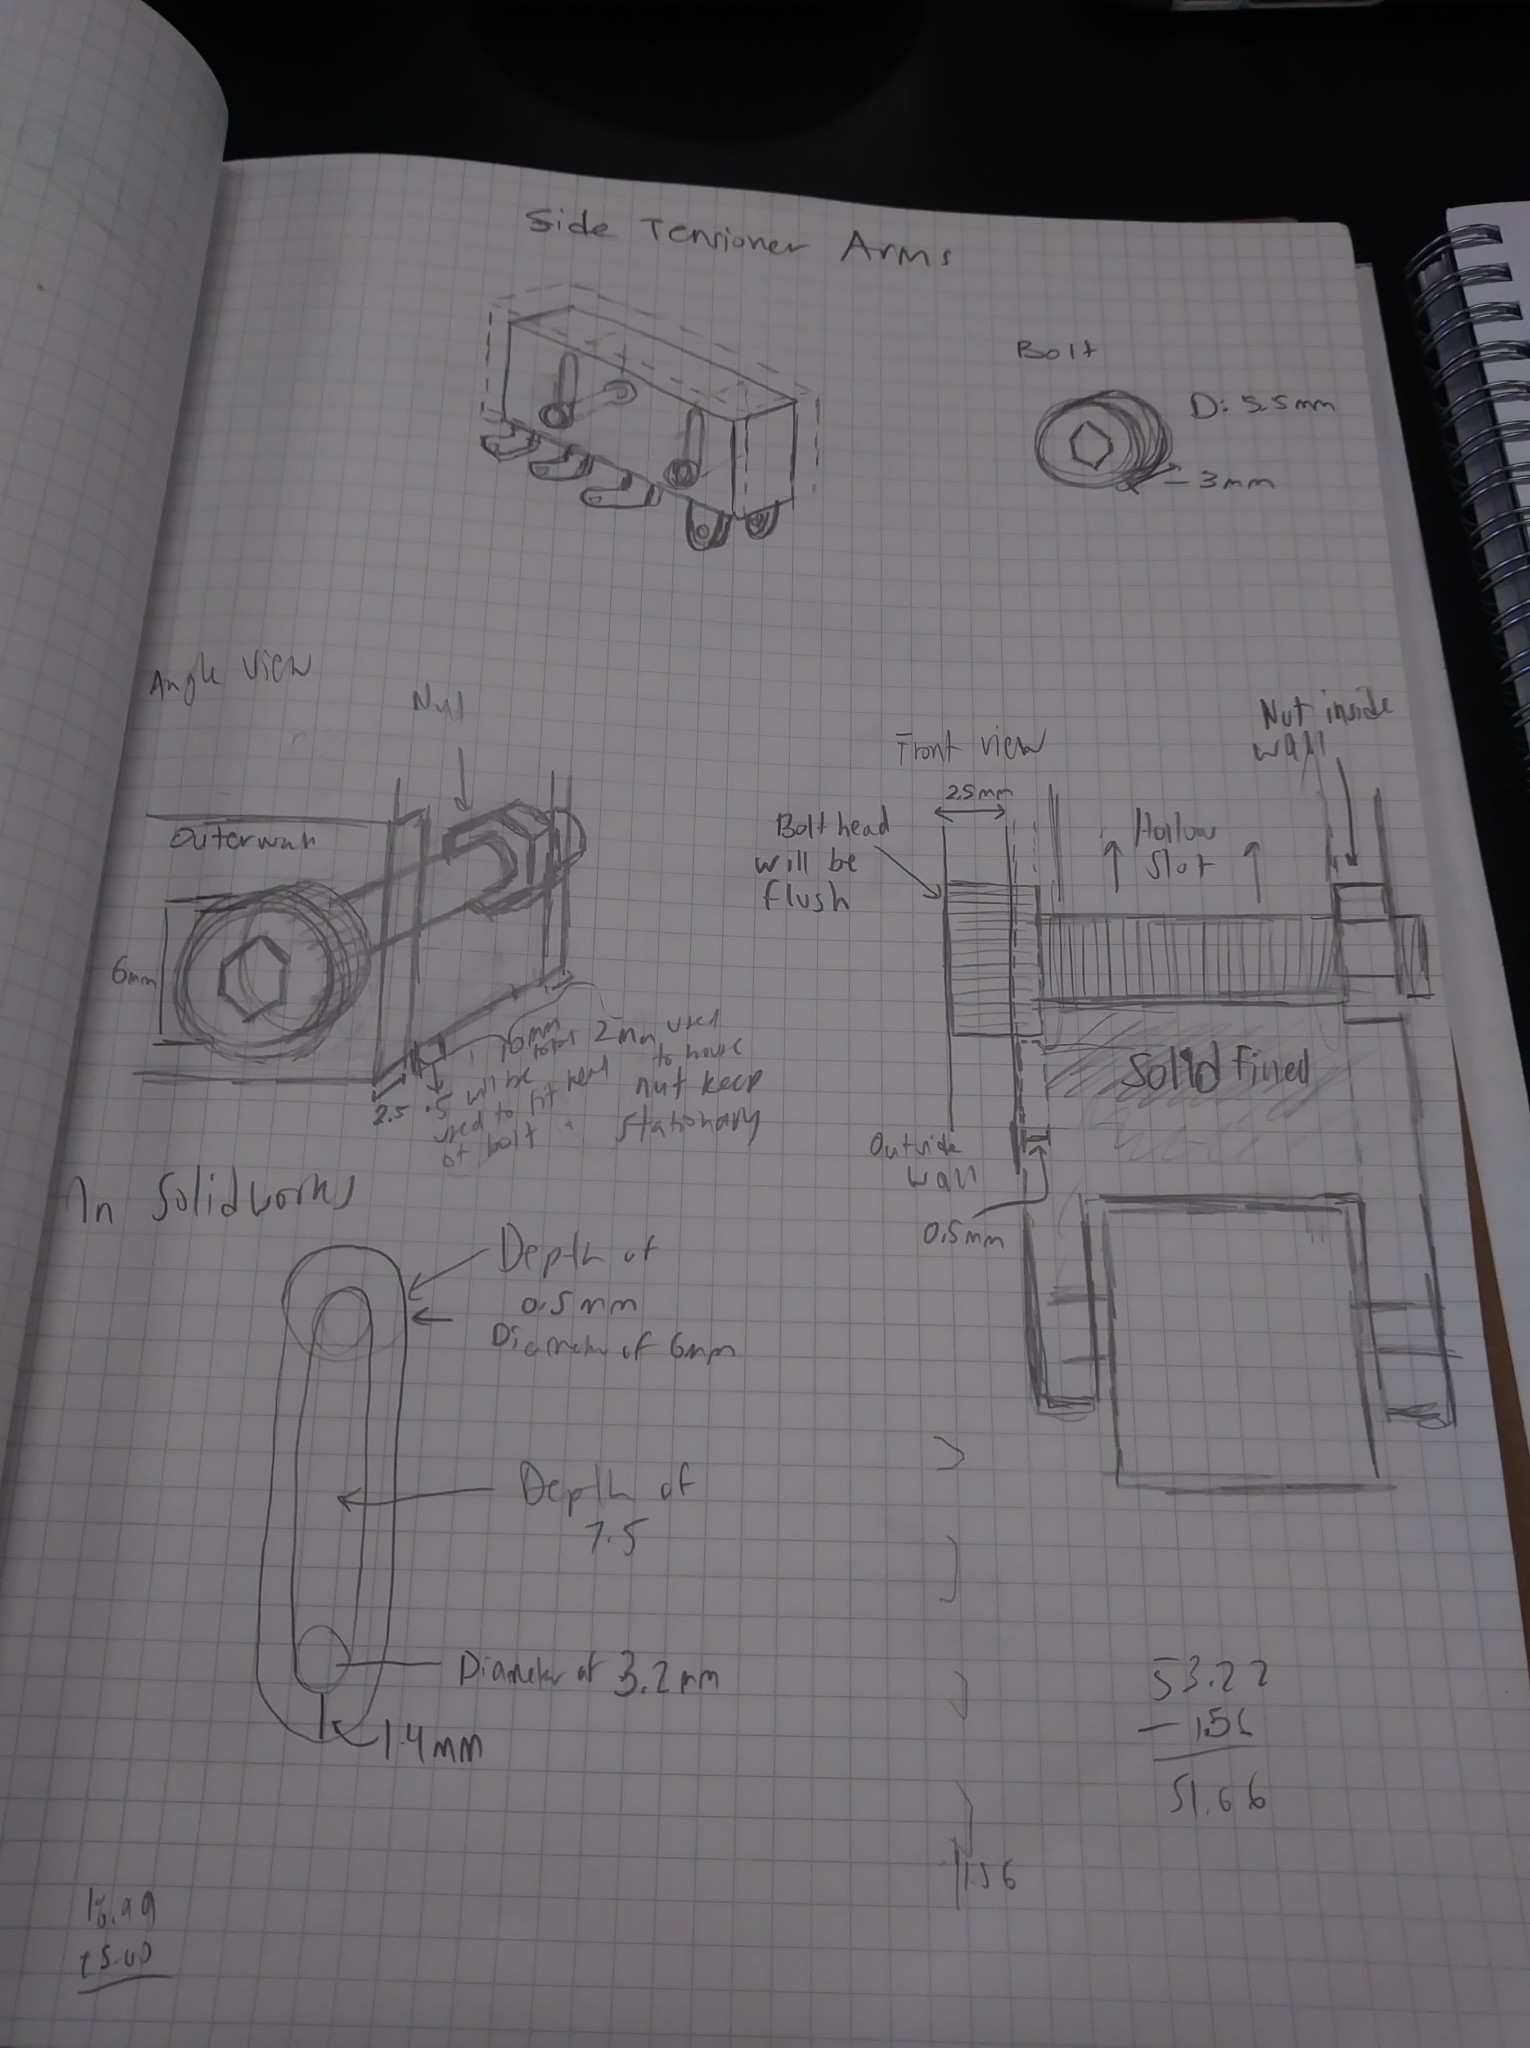 Side Tensioner Arms
Bolt
D: 5.5mm
3mm
Angle View
Nut
Outerwall
6mm
2.5
.5 will be
used to fit head
of bolt
10mm
total
2mm used
to house
nut keep
stationary
Front view
2.5mm
Nut inside
wall
Bolt head
will be
flush
Hollow
Slot
Solid Filled
Outside
wall
0.5mm
In Solidworks
Depth of
0.5mm
Diameter of 6mm
Depth of
7.5
Diameter of 3.2mm
1.4mm
53.22
- 1.56
51.66
1.56
5.00